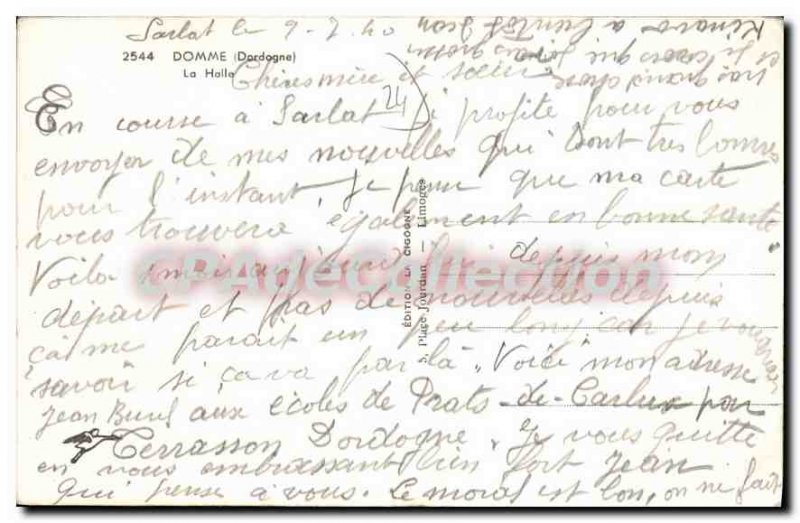 Sarlat le 9-7-40
2544 DOMME (Dordogne)
La Halle
Chères mère et sœur
24
En course à Sarlat j'profite pour vous
envoyer de mes nouvelles qui sont très bonnes
pour l'instant, je pense que ma carte
vous trouvera également en bonne santé
Voila mois aujourd'hui depuis mon
départ et pas de nouvelles depuis
ça me parait un peu long car je voudrais
savoir si ça va par là. Voici mon adresse
Jean aux écoles de Prats-de-Carlux par
Terrasson Dordogne. Je vous quitte
en vous embrassant bien fort Jean
qui pense à vous. Le moral est bon, on ne fait
pas grand chose
et je crois qui
a bientôt Jean
EDITION LA CIGOGNE
5, Place Jourdan — Limoges
CPA de Collection